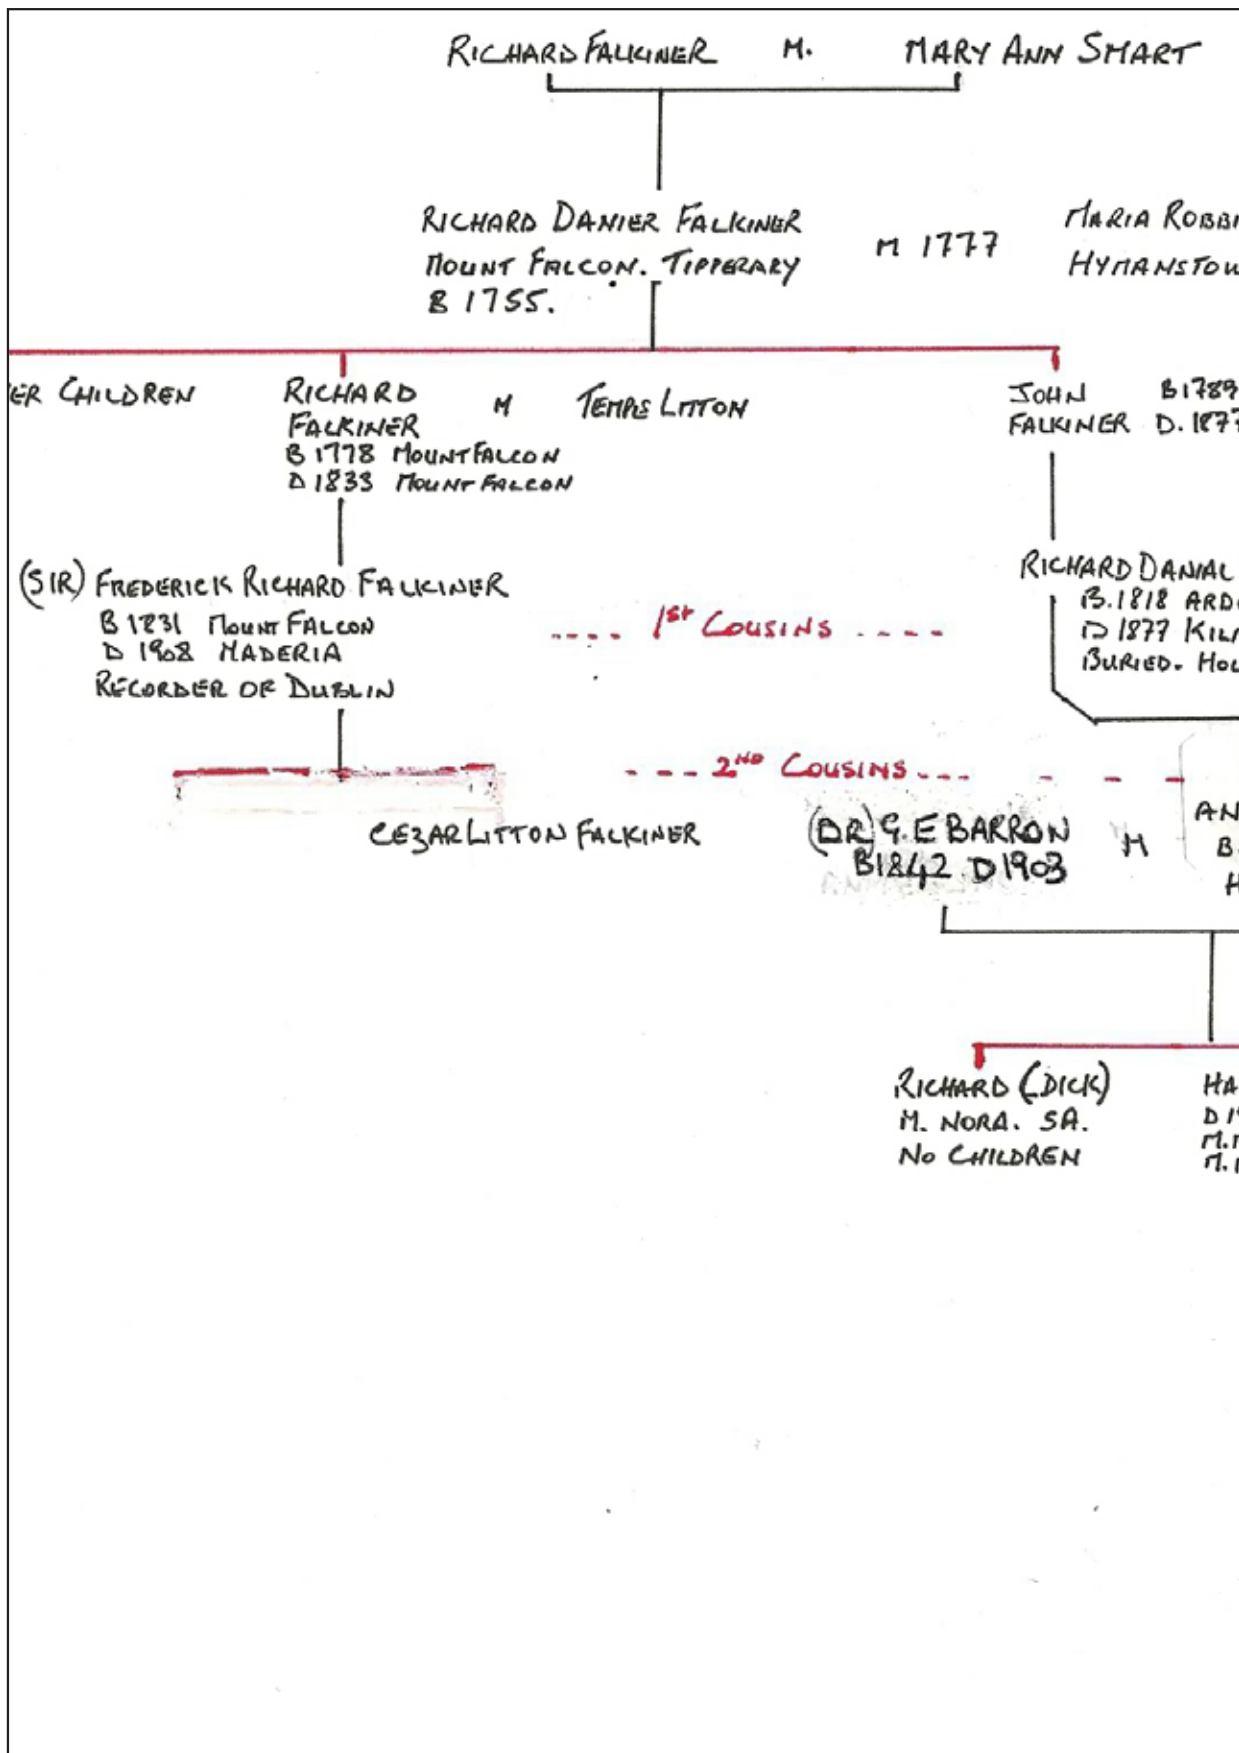 RICHARD FALKINER M. MARY ANN SMART
RICHARD DANIER FALKINER
MOUNT FALCON. TIPPERARY
B 1755.
M 1777
MARIA ROBBI
HYMANSTOW
ER CHILDREN
RICHARD
FALKINER
B 1778 MOUNT FALCON
D 1833 MOUNT FALCON
M
TEMPLE LITTON
JOHN B 1789
FALKINER D. 1877
(SIR) FREDERICK RICHARD FALKINER
B 1831 MOUNT FALCON
D 1908 MADERIA
RECORDER OF DUBLIN
---- 1ST COUSINS ----
RICHARD DANIAL
B. 1818 ARD
D 1877 KIL
BURIED. HOL
--- 2ND COUSINS --- - - -
CEZAR LITTON FALKINER
(DR) G. E BARRON
B1842 D1903
M
AN
B.
H
RICHARD (DICK)
M. NORA. SA.
NO CHILDREN
HA
D 19
M. M
M.